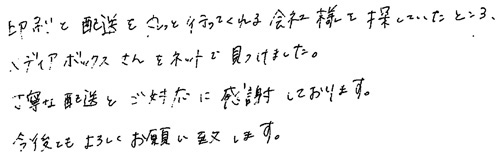 印刷と配送をやって行ってくれる会社様を探していたところ、
メディアボックスさんをネットで見つけました。
丁寧な配送とご対応に感謝しております。
今後ともよろしくお願い致します。